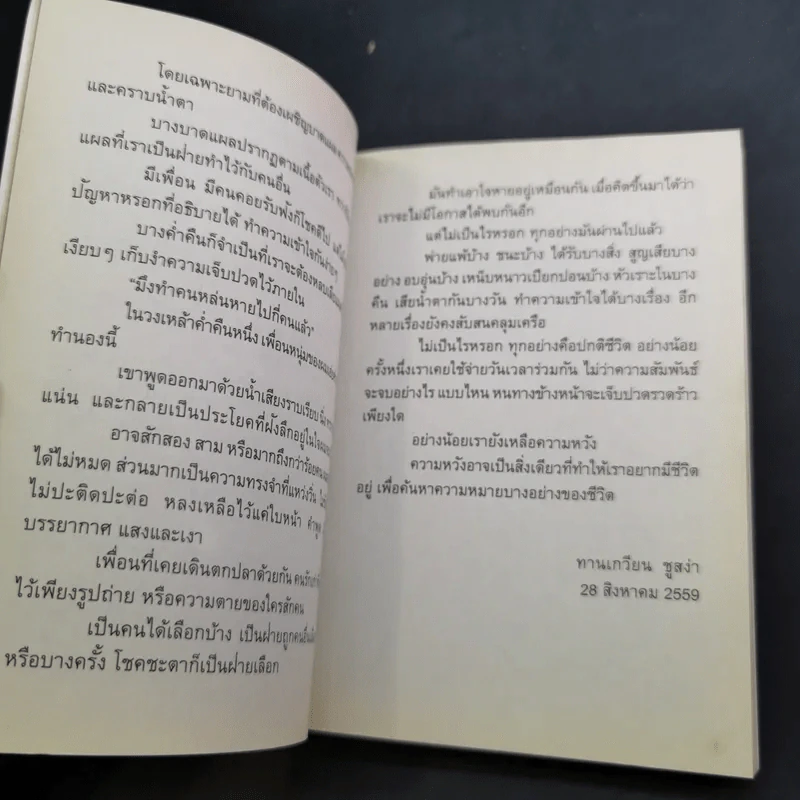 โดยเฉพาะยามที่ต้องเผชิญบาดแผล
และคราบน้ำตา
บางบาดแผลปรากฏตามเนื้อตัวเรา
แผลที่เราเป็นฝ่ายทำไว้กับคนอื่น
มีเพื่อน มีคนคอยรับฟังก็โชคดีไป
ปัญหาหรอกที่อธิบายได้ ทำความเข้าใจกันง่ายๆ
บางค่ำคืนก็จำเป็นที่เราจะต้องหลบ
เงียบๆ เก็บงำความเจ็บปวดไว้ภายใน
"มึงทำคนหล่นหายไปกี่คนแล้ว"
ในวงเหล้าค่ำคืนหนึ่ง เพื่อนหนุ่มของผม
ทำนองนี้
เขาพูดออกมาด้วยน้ำเสียงราบเรียบ นิ่ง
แน่น และกลายเป็นประโยคที่ฝังลึกอยู่ในใจ
อาจสักสอง สาม หรือมากถึงกว่าร้อยคน
ได้ไม่หมด ส่วนมากเป็นความทรงจำที่แหว่งวิ่น
ไม่ปะติดปะต่อ หลงเหลือไว้แค่ใบหน้า คำพูด
บรรยากาศ แสงและเงา
เพื่อนที่เคยเดินตกปลาด้วยกัน
ไว้เพียงรูปถ่าย หรือความตายของใครสักคน
เป็นคนได้เลือกบ้าง เป็นฝ่ายถูกคนอื่น
หรือบางครั้ง โชคชะตาก็เป็นฝ่ายเลือก
มันทำเอาใจหายอยู่เหมือนกัน เมื่อคิดขึ้นมาได้ว่า
เราจะไม่มีโอกาสได้พบกันอีก
แต่ไม่เป็นไรหรอก ทุกอย่างมันผ่านไปแล้ว
พ่ายแพ้บ้าง ชนะบ้าง ได้รับบางสิ่ง สูญเสียบาง
อย่าง อบอุ่นบ้าง เหน็บหนาวเปียกปอนบ้าง หัวเราะในบาง
คืน เสียน้ำตากันบางวัน ทำความเข้าใจได้บางเรื่อง อีก
หลายเรื่องยังคงสับสนคลุมเครือ
ไม่เป็นไรหรอก ทุกอย่างคือปกติชีวิต อย่างน้อย
ครั้งหนึ่งเราเคยใช้จ่ายวันเวลาร่วมกัน ไม่ว่าความสัมพันธ์
จะจบอย่างไร แบบไหน หนทางข้างหน้าจะเจ็บปวดรวดร้าว
เพียงใด
อย่างน้อยเรายังเหลือความหวัง
ความหวังอาจเป็นสิ่งเดียวที่ทำให้เราอยากมีชีวิต
อยู่ เพื่อค้นหาความหมายบางอย่างของชีวิต
ทานเกวียน ชูสง่า
28 สิงหาคม 2559